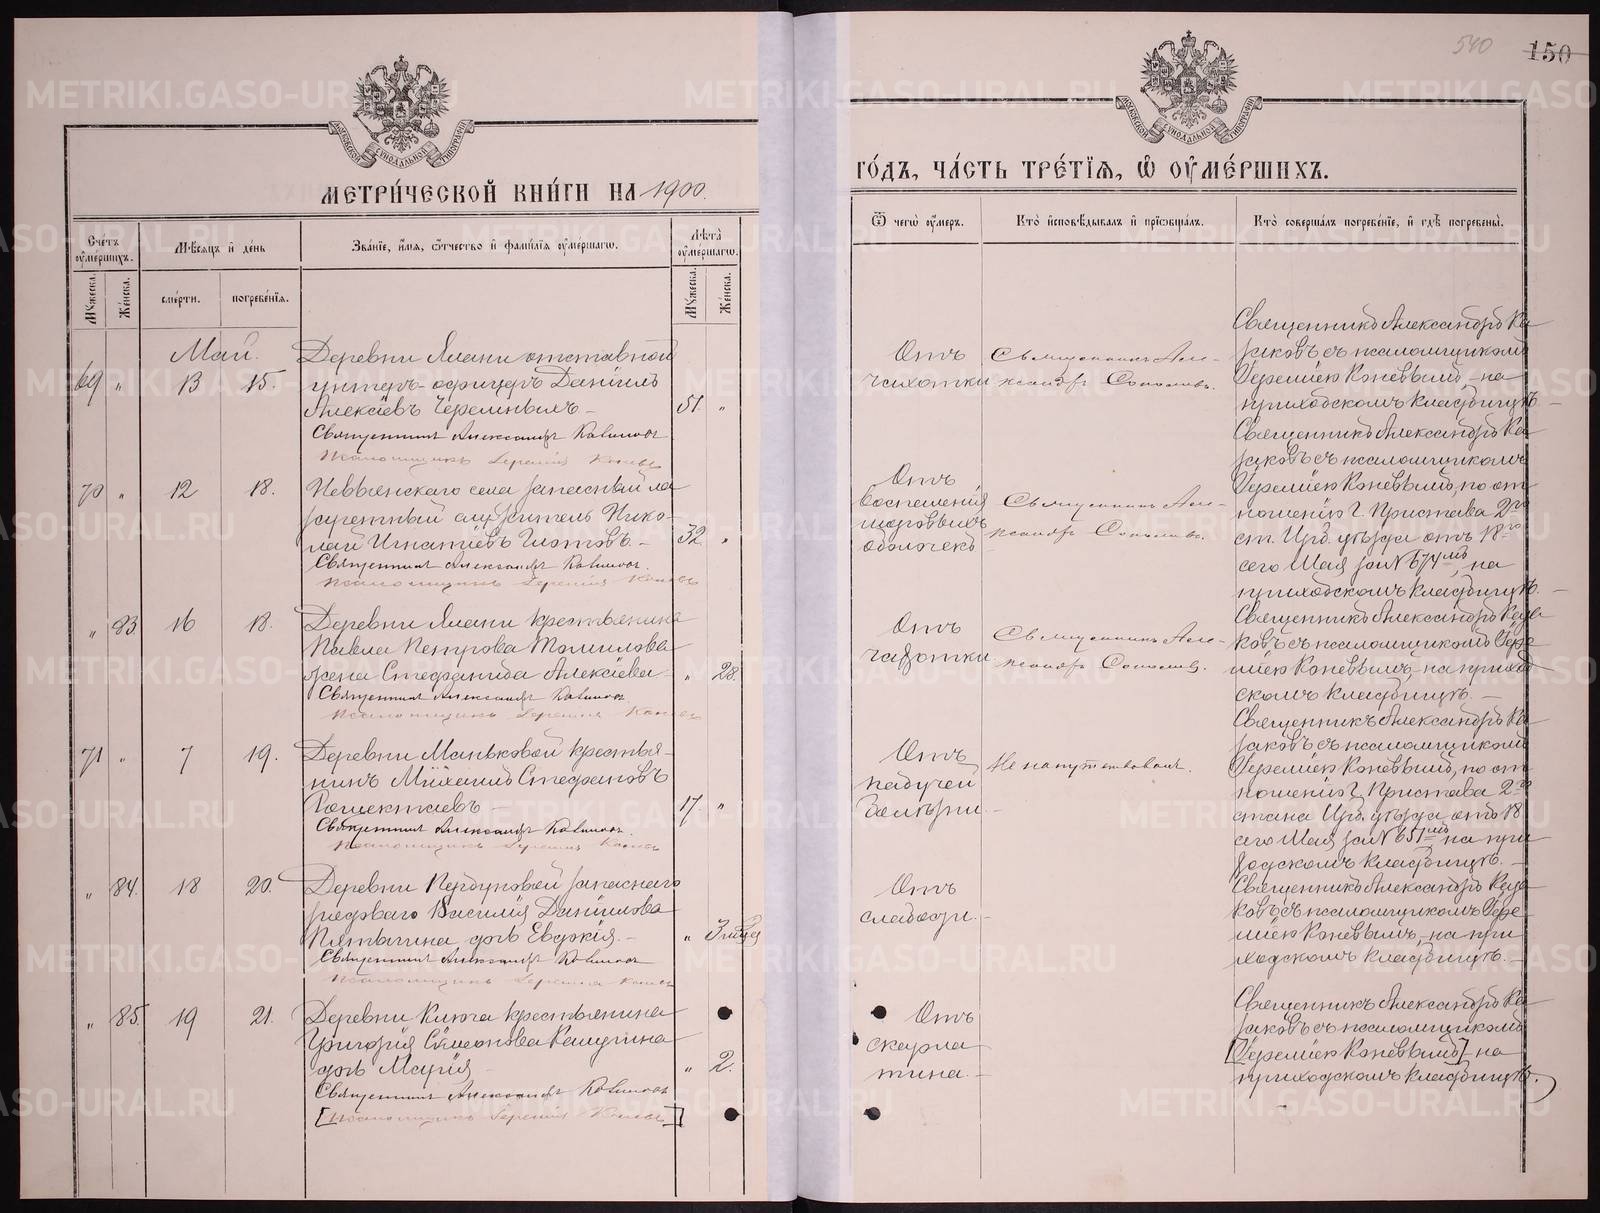 540
150
МОСКОВСКОЙ СѴНОДАЛЬНОЙ ТИПОГРАФІИ
МЕТРИ́ЧЕСКОЙ КНИ́ГИ НА 1900.
ГО́ДЪ, ЧА́СТЬ ТРЕ́ТІЯ, Ѽ ОУ҆МЕ́РШИХЪ.
Сче́тъ оу҆ме́ршихъ.
Мꙋ́жеска.
Же́нска.
Мѣ́сяцъ и҆ де́нь
сме́рти.
погребе́нїя.
Зва́нїе, и҆́мя, ѻ҆́тчество и҆ фами́лїя оу҆ме́ршагѡ.
Лѣ́та оу҆ме́ршагѡ.
Мꙋ́жеска.
Же́нска.
Ѿ чегѡ̀ оу҆́меръ.
Кто̀ и҆сповѣ́дывалъ и҆ прїѻбща́лъ.
Кто̀ соверша́лъ погребе́нїе, и҆ гдѣ̀ погребены̀.
Май.
69 " 13 15.
Деревни Ялани отставной
унтеръ-офицеръ Даніилъ
Алексѣевъ Черемныхъ –
51. "
Священникъ Александръ
Псаломщикъ Іеремія Коневъ
Отъ
чахотки
Священникъ Александръ
Священникъ Александръ Ка
заковъ съ псаломщикомъ
Іереміею Коневымъ, на
приходскомъ кладбищѣ –
70 " 12 18.
Невьянскаго села запасный ла
заретный служитель Нико-
лай Игнатіевъ –
32. "
Священникъ Александръ
Псаломщикъ Іеремія Коневъ
Отъ
воспаленія
мозговыхъ
оболочекъ
Священникъ Александръ
Священникъ Александръ Ка
заковъ съ псаломщикомъ
Іереміею Коневымъ, по от
ношенію Г. Пристава 2го
ст. Ирб. уѣзда отъ 18го
сего Мая за № 674мъ, на
приходскомъ кладбищѣ. –
" 83. 16 18.
Деревни Ялани крестьянина
Павла Петрова Томилова
жена Стефанида Алексѣева
" 28.
Священникъ Александръ
Псаломщикъ Іеремія Коневъ
Отъ
чахотки
Священникъ Александръ
Священникъ Александръ Каза
ковъ съ псаломщикомъ Іере
міею Коневымъ, на приход
скомъ кладбищѣ. –
71 " 7 19.
Деревни Маньковой крестья-
нинъ Михаилъ Стефановъ
17. "
Священникъ Александръ
Псаломщикъ Іеремія Коневъ
Отъ
падучей
болѣзни. –
Не напутствованъ.
Священникъ Александръ Ка
заковъ съ псаломщикомъ
Іереміею Коневымъ, по от
ношенію Г. Пристава 2го
стана Ирб. уѣзда отъ 18
сего Мая за № 651мъ на при
ходскомъ кладбищѣ. –
" 84. 18 20.
Деревни запаснаго
рядоваго Василія Даніилова
дочь Евдокія. –
"
Священникъ Александръ
Псаломщикъ Іеремія Коневъ
Отъ
слабости. –
Священникъ Александръ Каза
ковъ съ псаломщикомъ Іере
міею Коневымъ, на при
ходскомъ кладбищѣ. –
" 85. 19 21.
Деревни Ключа крестьянина
Григорія Сѵмеонова
дочь Марія
" 2.
Священникъ Александръ
[Псаломщикъ Іеремія Коневъ]
Отъ
скарла
тина. –
Священникъ Александръ Ка
заковъ съ псаломщикомъ
[Іереміею Коневымъ] на
приходскомъ кладбищѣ.
METRIKI.GASO-URAL.RU